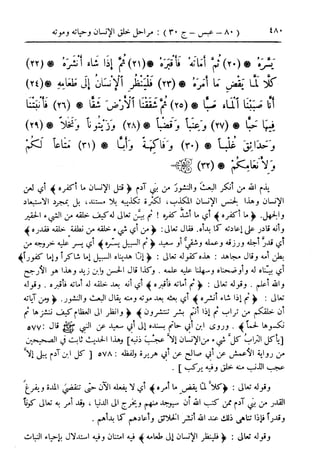 ٤٨٠ (٨٠ - عبس - ج ٣٠) : مراحل خلق الإنسان وحياته وموته
يَسَّرَهُ * (٢٠) ثُمَّ أَمَاتَهُ فَأَقْبَرَهُ * (٢١) ثُمَّ إِذَا شَاءَ أَنشَرَهُ * (٢٢)
كَلَّا لَمَّا يَقْضِ مَا أَمَرَهُ * (٢٣) فَلْيَنظُرِ الْإِنسَانُ إِلَى طَعَامِهِ * (٢٤)
أَنَّا صَبَبْنَا الْمَاءَ صَبًّا * (٢٥) ثُمَّ شَقَقْنَا الْأَرْضَ شَقًّا * (٢٦) فَأَنبَتْنَا
فِيهَا حَبًّا * (٢٧) وَعِنَبًا وَقَضْبًا * (٢٨) وَزَيْتُونًا وَنَخْلًا * (٢٩)
وَحَدَائِقَ غُلْبًا * (٣٠) وَفَاكِهَةً وَأَبًّا * (٣١) مَتَاعًا لَكُمْ
وَلِأَنْعَامِكُمْ * (٣٢)
يذم الله من أنكر البعث والنشور من بني آدم ﴿ قتل الإنسان ما أكفره ﴾ أي لعن
الإنسان وهذا لجنس الإنسان المكذب، لكثرة تكذيبه بلا مستند، بل بمجرد الاستبعاد
والجهل. ﴿ ما أكفره ﴾ أي ما أشد كفره ! ثم بيّن تعالى له كيف خلقه من الشيء الحقير
وأنه قادر على إعادته كما بدأه. فقال تعالى: ﴿ من أي شيء خلقه من نطفة خلقه فقدره ﴾
أي قدر أجله ورزقه وعمله وشقي أو سعيد ﴿ ثم السبيل يسّره ﴾ أي يسر عليه خروجه من
بطن أمه وقال مجاهد : هذه كقوله تعالى : ﴿ إنا هديناه السبيل إما شاكراً وإما كفوراً ﴾
أي بيناه له وأوضحناه وسهلنا عليه علمه. وكذا قال الحسن وابن زيد وهذا هو الأرجح
والله أعلم. وقوله تعالى : ﴿ ثم أماته فأقبره ﴾ أي أنه بعد خلقه له أماته فأقبره . وقوله
تعالى : ﴿ ثم إذا شاء أنشره ﴾ أي بعثه بعد موته ومنه يقال البعث والنشور. ﴿ ومن آياته
أن خلقكم من تراب ثم إذا أنتم بشر تنتشرون ﴾ ﴿ وانظر إلى العظام كيف ننشزها ثم
نكسوها لحماً ﴾. وروى ابن أبي حاتم بسنده إلى أبي سعيد عن النبي ﷺ قال : ٥٧٧
[ يأكل التراب كل شيء من الإنسان إلا عجب ذنبه ] وهذا الحديث ثابت في الصحيحين
من رواية الأعمش عن أبي صالح عن أبي هريرة ولفظه : ٥٧٨ [ كل ابن آدم يبلى إلا
عجب الذنب منه خلق وفيه يركب ] .
وقوله تعالى : ﴿ كلا لما يقض ما أمره ﴾ أي لا يفعله الآن حتى تنقضي المدة ويفرغ
القدر من بني آدم ممن كتب الله أن سيوجد منهم ويخرج إلى الدنيا ، وقد أمر به تعالى كوناً
وقدراً فإذا تناهى ذلك عند الله أنشر الخلائق وأعادهم كما بدأهم .
وقوله تعالى : ﴿ فلينظر الإنسان إلى طعامه ﴾ فيه امتنان وفيه استدلال بإحياء النبات